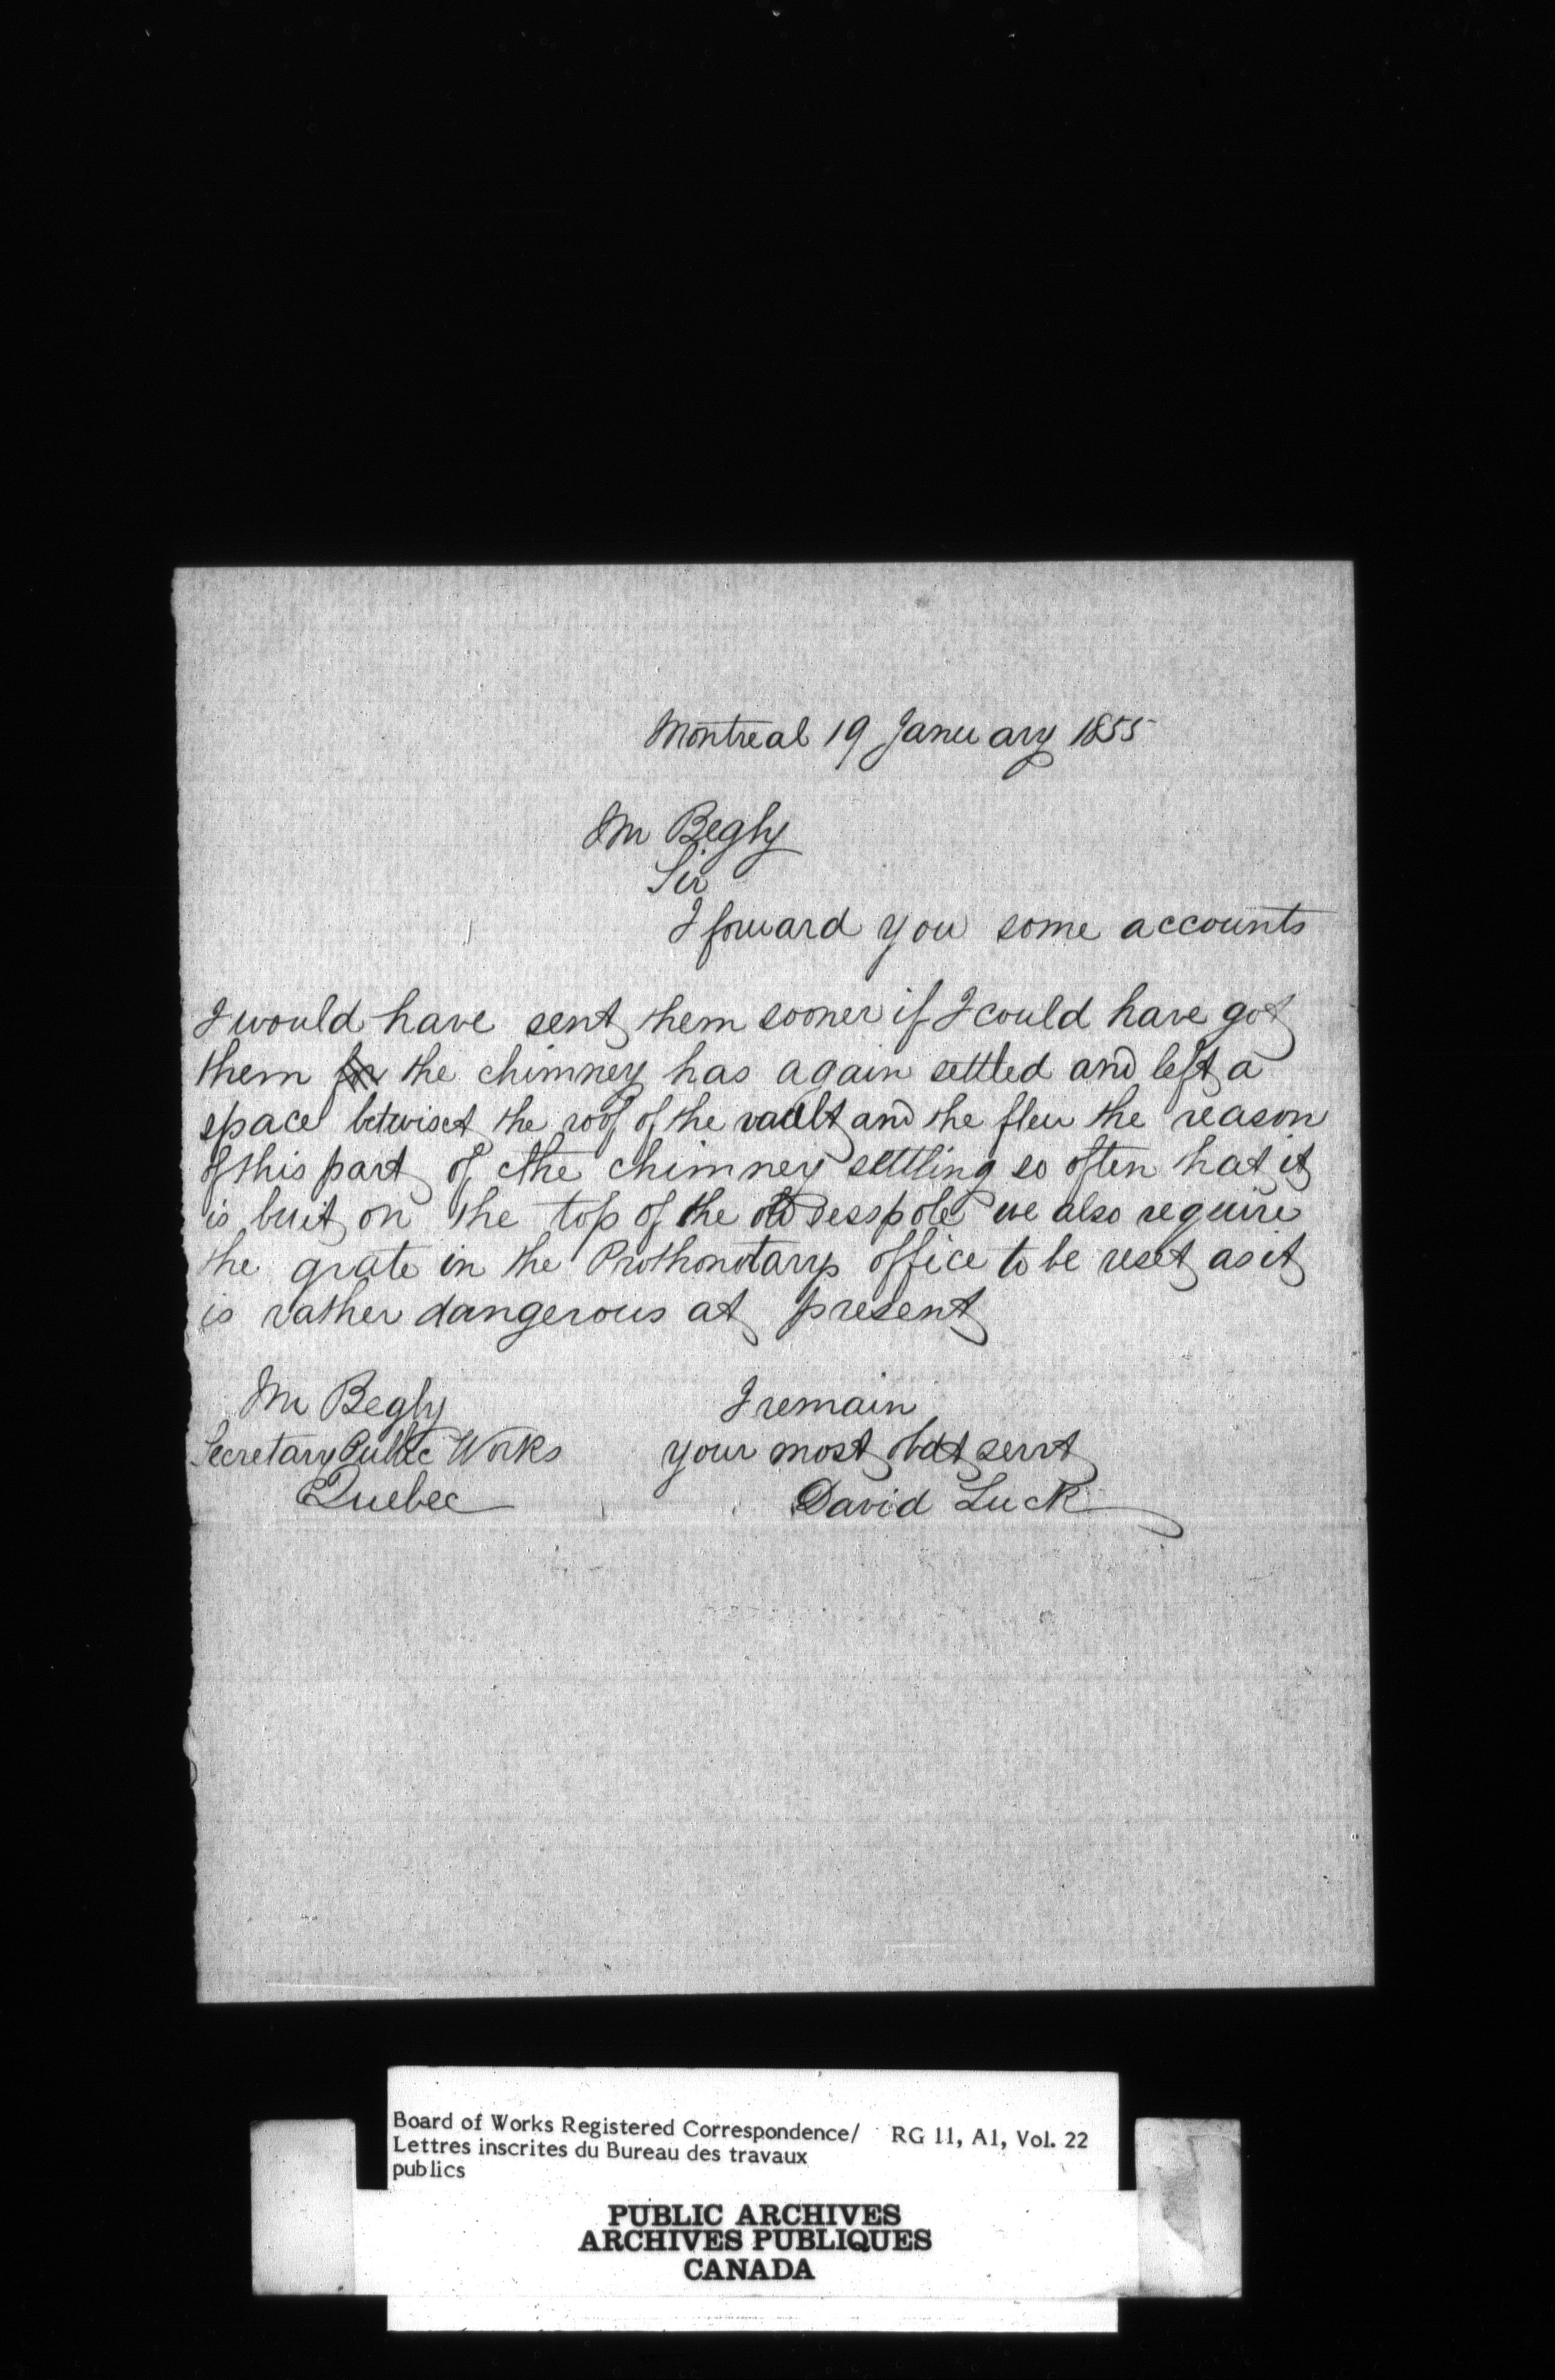 Montreal 19 January 1855
Mr Begly
Sir
I forward you some accounts
I would have sent them sooner if I could have got
them the chimney has again settled and left a
space betwixt the roof of the vault and the flew the reason
of this part of the chimney settling so often hat it
is buit on the top of the old sesspole we also require
the grate in the Prothonotarys office to be reset as it
is rather dangerous at present
Mr Begly I remain
Secretary Public Works your most obdt servt
Quebec David Luck
Board of Works Registered Correspondence/ RG 11, A1, Vol. 22
Lettres inscrites du Bureau des travaux
publics
PUBLIC ARCHIVES
ARCHIVES PUBLIQUES
CANADA